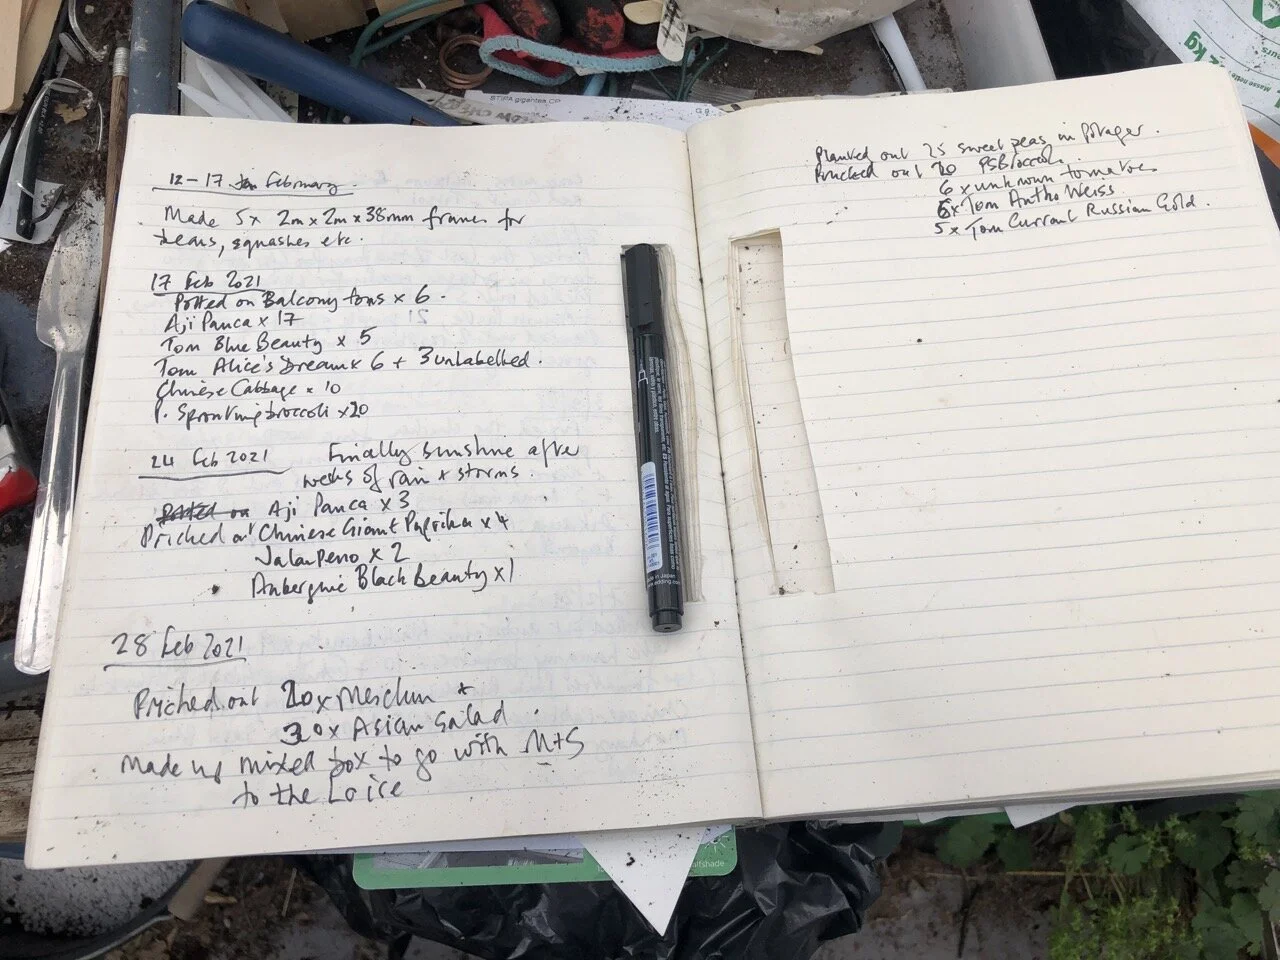 STIPA gigantea CP
kg
12-17 Jan February
Made 5x 2m x 2m x 38mm frames for
beans, squashes etc.
17 Feb 2021
Potted on Balcony toms x 6.
Aji Panca x 17
Tom Blue Beauty x 5
Tom Alice's Dream x 6 + 3 unlabelled.
Chinese Cabbage x 10
P. Sprouting broccoli x 20
24 Feb 2021 Finally sunshine after
weeks of rain + storms.
Potted on Aji Panca x 3
Pricked out Chinese Giant Paprika x 4
Jalapeno x 2
Aubergine Black Beauty x 1
28 Feb 2021
Pricked out 20x Mesclun *
30x Asian Salad.
Made up mixed box to go with M+S
to the Loire
Planted out 25 sweet peas in Potager.
Pricked out 20 PSBroccoli.
6 x unknown tomatoes
6x Tom Antho Weiss
5x Tom Currant Russian Gold.
Made in Japan
edding.com
halfshade